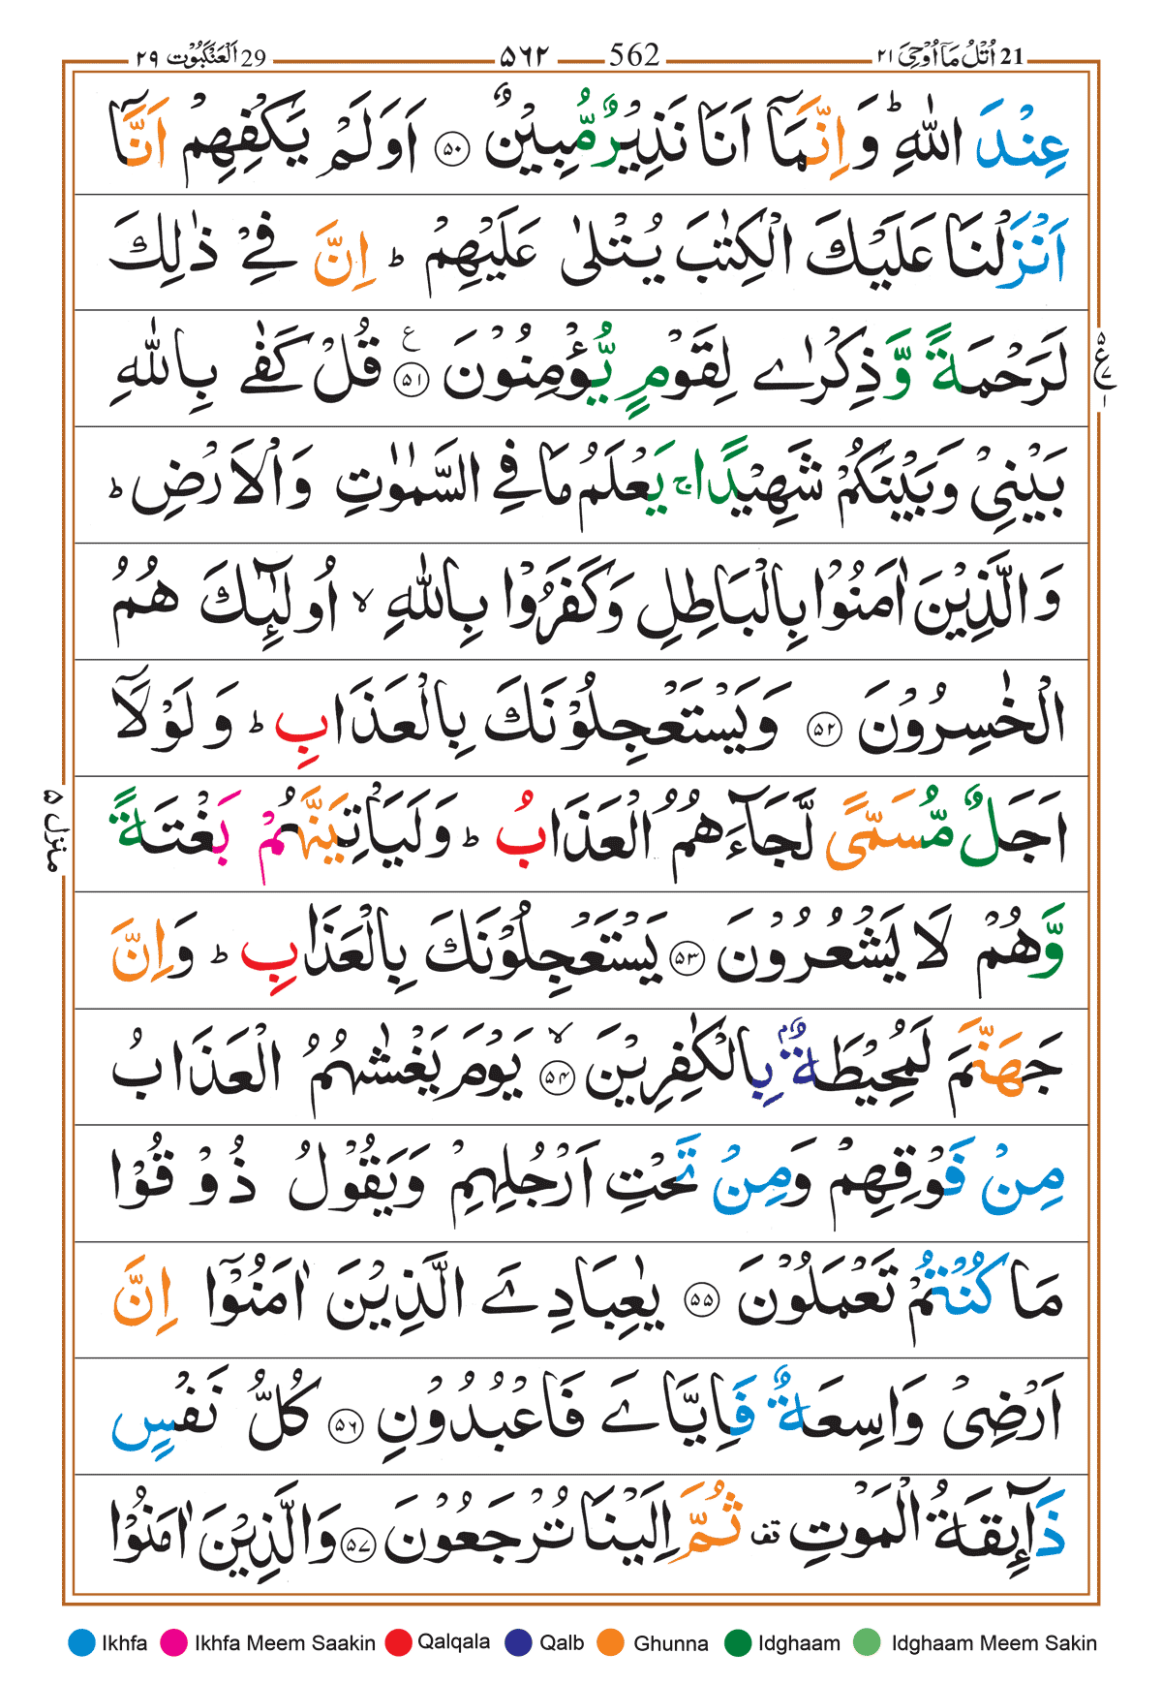 21 اُتْلُ مَاۤ اُوْحِیَ ۲۱ 562 ۵۶۲ 29 اَلْعَنْكَبُوْت ۲۹
عِنْدَ اللّٰهِ ؕ وَ اِنَّمَاۤ اَنَا نَذِیْرٌ مُّبِیْنٌ ۝۵۰ اَوَلَمْ یَكْفِهِمْ اَنَّاۤ
اَنْزَلْنَا عَلَیْكَ الْكِتٰبَ یُتْلٰی عَلَیْهِمْ ؕ اِنَّ فِیْ ذٰلِكَ
لَرَحْمَةً وَّ ذِكْرٰے لِقَوْمٍ یُّؤْمِنُوْنَ ۝۵۱ ع قُلْ كَفٰے بِاللّٰهِ
ع
بَیْنِیْ وَ بَیْنَكُمْ شَهِیْدًا ۚ یَعْلَمُ مَا فِے السَّمٰوٰتِ وَ الْاَرْضِ ؕ
وَ الَّذِیْنَ اٰمَنُوْا بِالْبَاطِلِ وَ كَفَرُوْا بِاللّٰهِ ۙ اُولٰٓئِكَ هُمُ
الْخٰسِرُوْنَ ۝۵۲ وَ یَسْتَعْجِلُوْنَكَ بِالْعَذَابِ ؕ وَ لَوْ لَاۤ
اَجَلٌ مُّسَمًّی لَّجَآءَهُمُ الْعَذَابُ ؕ وَ لَیَاْتِیَنَّهُمْ بَغْتَةً
منزل ۵
وَّ هُمْ لَا یَشْعُرُوْنَ ۝۵۳ یَسْتَعْجِلُوْنَكَ بِالْعَذَابِ ؕ وَ اِنَّ
جَهَنَّمَ لَمُحِیْطَةٌۢ بِالْكٰفِرِیْنَ ۝۵۴ ۙ یَوْمَ یَغْشٰىهُمُ الْعَذَابُ
مِنْ فَوْقِهِمْ وَ مِنْ تَحْتِ اَرْجُلِهِمْ وَ یَقُوْلُ ذُوْقُوْا
مَا كُنْتُمْ تَعْمَلُوْنَ ۝۵۵ یٰعِبَادِےَ الَّذِیْنَ اٰمَنُوْۤا اِنَّ
اَرْضِیْ وَاسِعَةٌ فَاِیَّاےَ فَاعْبُدُوْنِ ۝۵۶ كُلُّ نَفْسٍ
ذَآئِقَةُ الْمَوْتِ ۫ قف ثُمَّ اِلَیْنَا تُرْجَعُوْنَ ۝۵۷ وَ الَّذِیْنَ اٰمَنُوْا
Ikhfa Ikhfa Meem Saakin Qalqala Qalb Ghunna Idghaam Idghaam Meem Sakin